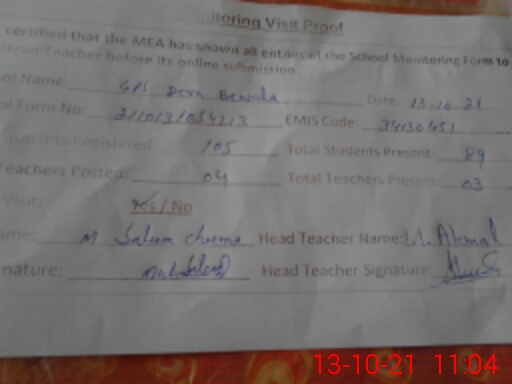 itoring Visit Proof
certified that the MEA has shown all entries of the School Monitoring Form to
Head Teacher before its online submission.
ol Name: GPS Dera Date 13-10-21
ol Form No: EMIS Code:
tudents Registered: 105 Total Students Present: 89
Teachers Posted: 04 Total Teachers Present: 03
Visit: Yes/No
ame: M Saleem cheema Head Teacher Name: M. Akmal
nature: Head Teacher Signature:
13-10-21 11:04